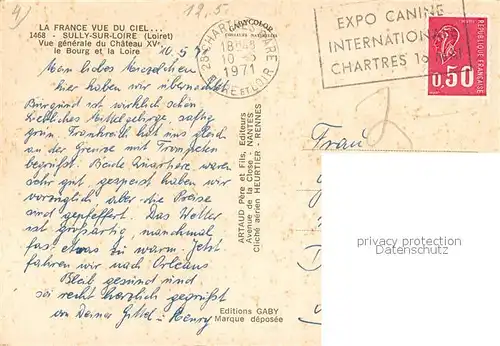 4)
19.5.
LA FRANCE VUE DU CIEL...
1468 - SULLY-SUR-LOIRE (Loiret)
Vue générale du Château XVe
le Bourg et la Loire
GABYCOLOR
10.5.71
Mein liebes
hier haben wir übernachtet.
Burgund ist wirklich schön
Liebliches Mittelgebirge, saftig
grün. Frankreich hat uns gleich
an der Grenze mit Trompeten
begrüßt. Beide Quartiere waren
sehr gut, gespeist haben wir
vorzüglich, aber die Preise
sind gepfeffert. Das Wetter
ist großartig, manchmal
fast etwas zu warm. Jetzt
fahren wir nach Orléans
Bleib gesund und
sei recht herzlich gegrüßt
von Deiner
Editions GABY
Marque déposée
ARTAUD Père et Fils, Editeurs
Avenue de la Close - NANTES
Cliché aérien HEURTIER - RENNES
28 CHARTRES GARE
18H
10-5
1971
EURE ET LOIR
EXPO CANINE
INTERNATIONALE
CHARTRES
REPUBLIQUE FRANCAISE
0,50
Frau
privacy protection
Datenschutz